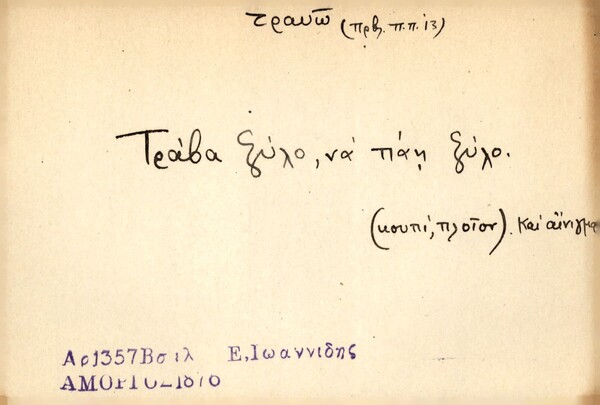 τραυῶ (πρβ. π.π. 13)
Τράβα ξύλο, νά πάῃ ξύλο.
(κουπί, πλοῖον). Καί αἴνιγμα
Αρ1357Βσιλ Ε,Ιωαννιδης
ΑΜΟΡΓΟΣ1876